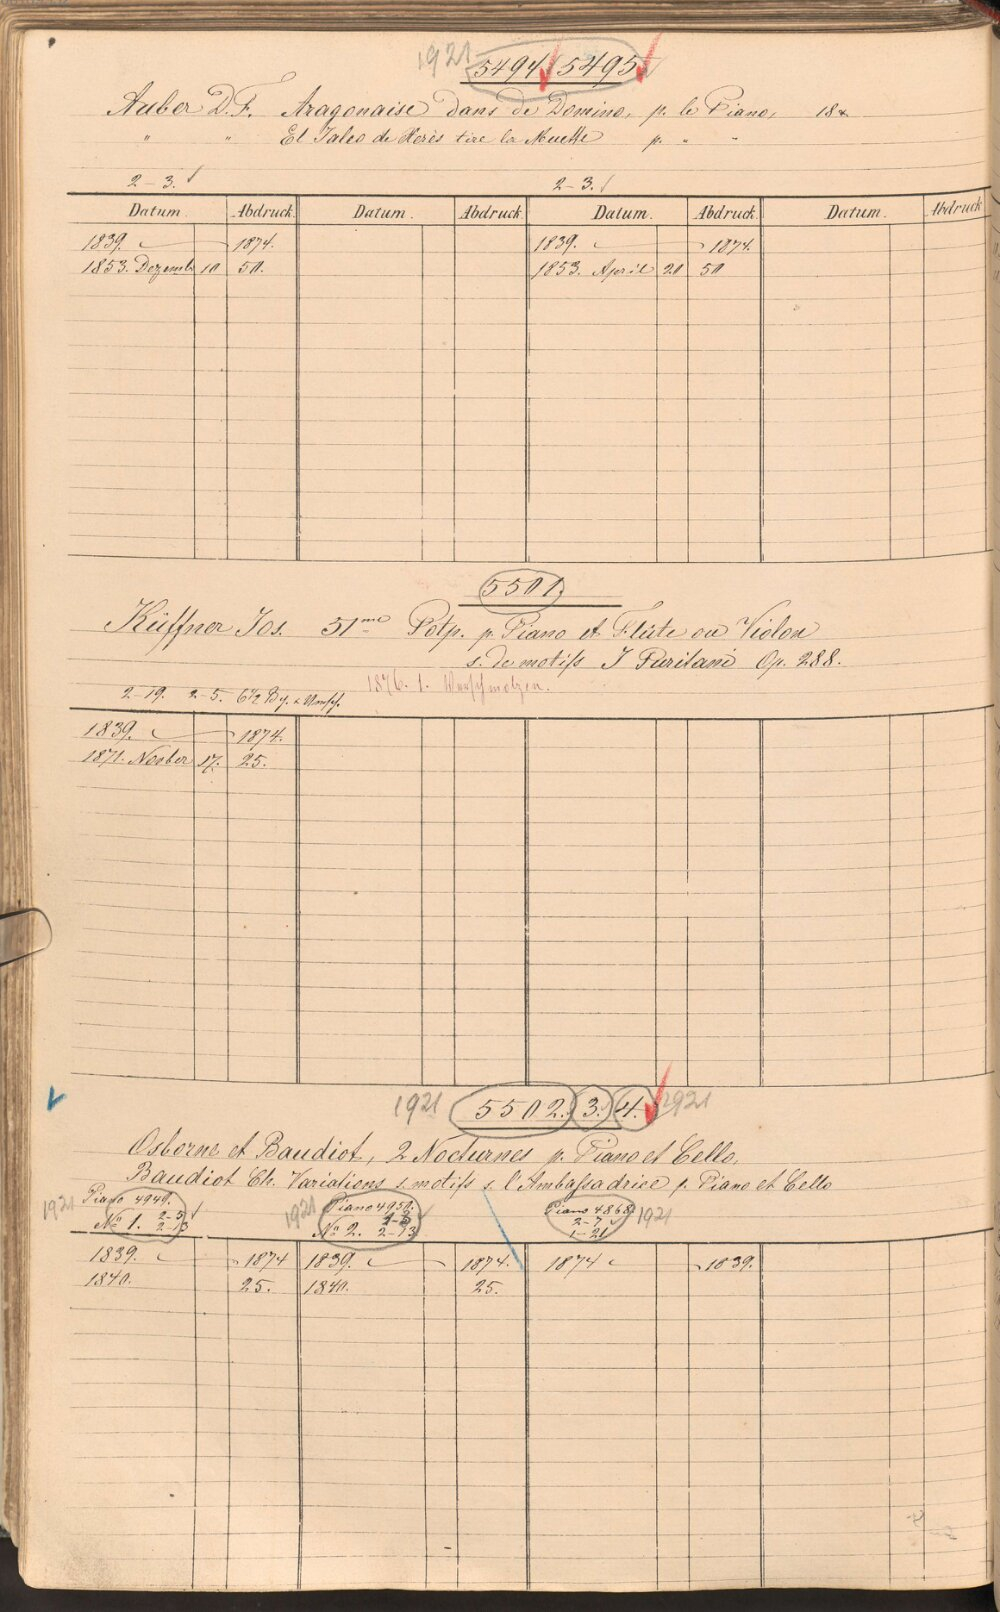 1921 5494 5495
Auber D. F. Aragonaise dans de Domino, p. le Piano, 18x
" " El Jaleo de Xerès tire la Muette p. " "
2-3. 2-3.
Datum. Abdruck. Datum. Abdruck. Datum. Abdruck. Datum. Abdruck.
1839. 1874. 1839. 1874.
1853. Dezemb. 10 50. 1853. April 20 50
5501.
Küffner Jos. 51me Potp. p. Piano et Flûte ou Violon
s. de motifs I Puritani Op. 288.
1876. 1.
2-19. 2-5.
1839. 1874.
1871. Novber 17. 25.
1921 5502. 3. 4. 1921
Osborne et Baudiot, 2 Nocturnes p. Piano et Cello.
Baudiot Ch. Variations s. motifs s. l'Ambassadrice p. Piano et Cello
1921 Piano 4949. 1921 Piano 4950. Piano 4868. 1921
No 1. 2-5 2-13 No 2. 2-13 2-7 1-21
1839. 1874 1839. 1874. 1874 1839.
1840. 25. 1840. 25.